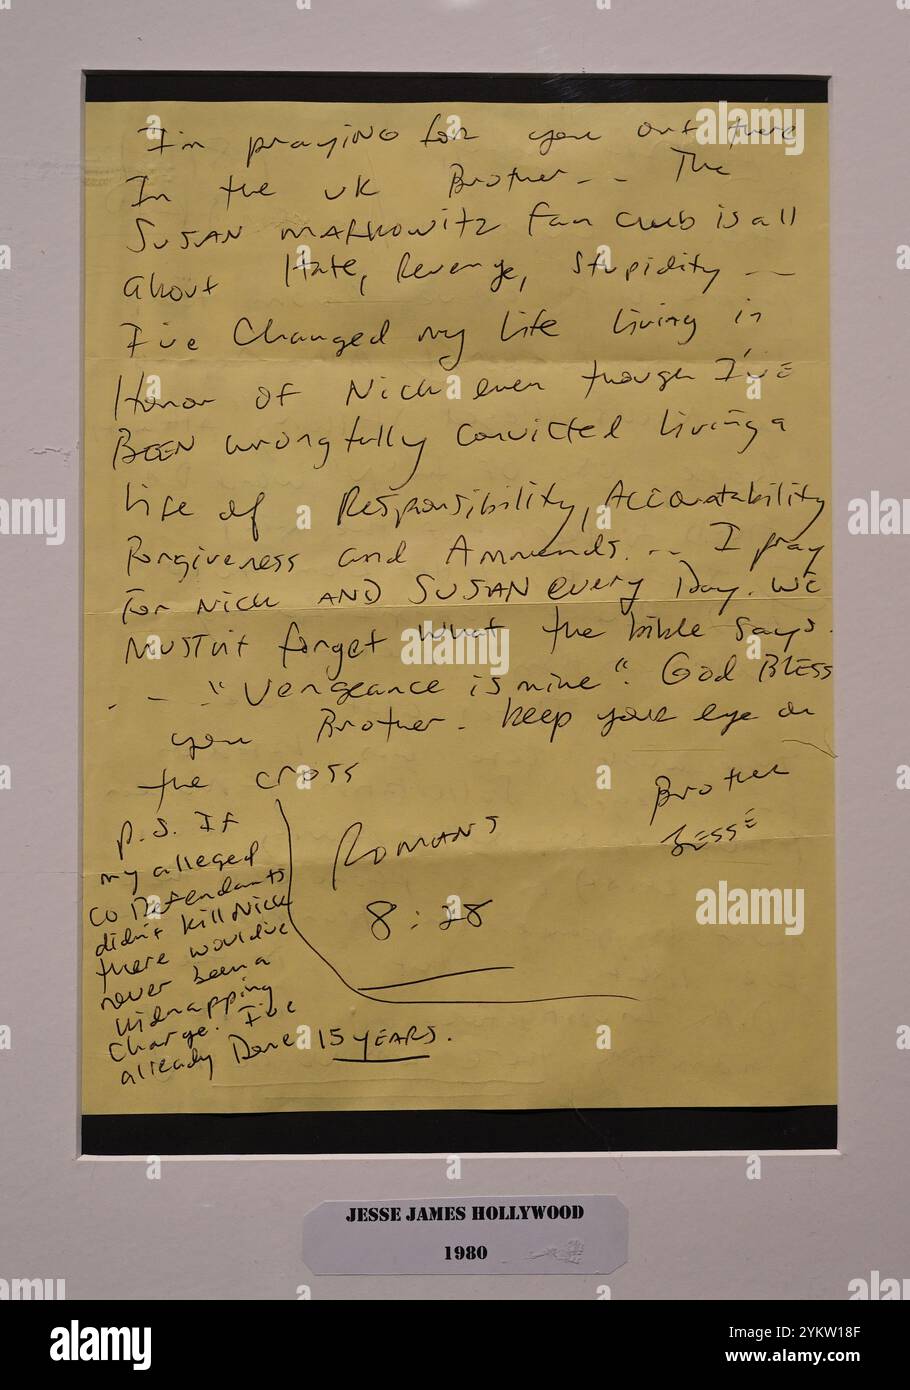 I'm praying for you out there
In the UK Brother - - The
SUSAN MARKOWITZ fan club is all
about Hate, Revenge, Stupidity --
I've Changed my life living in
Honor of Nick even though I've
BEEN wrongfully convicted living a
life of Responsibility, Accountability
Forgiveness and Ammends. -- I pray
For NICK AND SUSAN every Day. WE
MUSTN't forget what the bible says.
- - "Vengeance is mine". God BLESS
you Brother - keep your eye on
the cross
Brother
JESSE
ROMANS
8:28
P.S. If
my alleged
co Defendants
didn't kill Nick
there would've
never been a
kidnapping
charge. I've
already Done 15 YEARS.
JESSE JAMES HOLLYWOOD
1980
alamy
Image ID: 2YKW18F
www.alamy.com